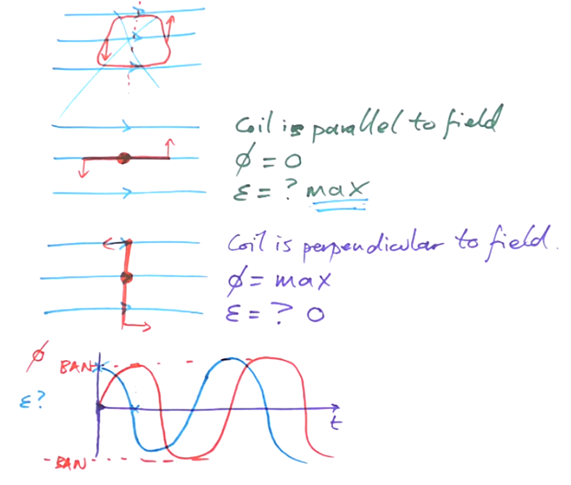 Coil is parallel to field
ϕ = 0
ε = ? max
Coil is perpendicular to field.
ϕ = max
ε = ? 0
ϕ
BAN
ε?
t
-BAN